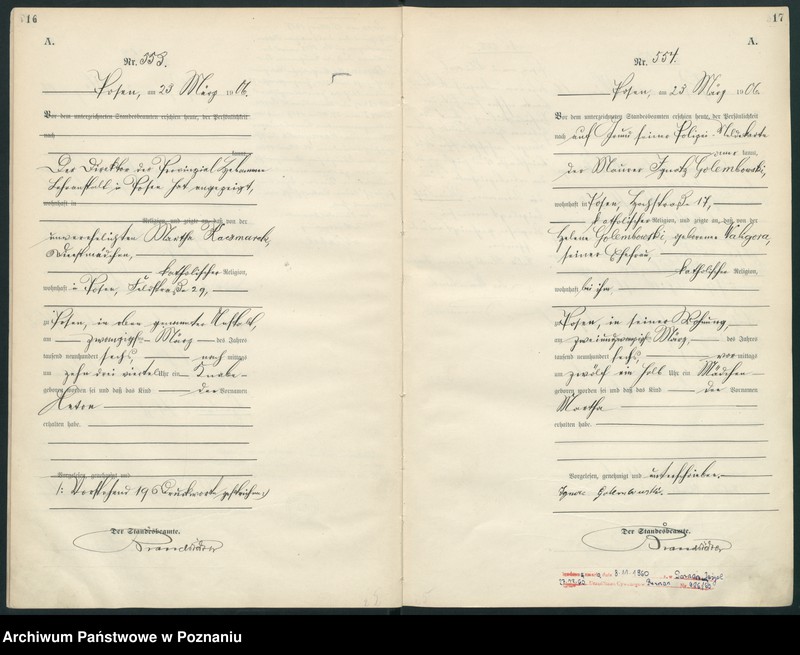 16
A.
Nr. 553.
Posen, am 23 März 1906.
Vor dem unterzeichneten Standesbeamten erschien heute, der Persönlichkeit
nach
kannt,
Der Direktor der Provinzial Hebammen
Lehranstalt in Posen hat angezeigt,
wohnhaft in
Religion, und zeigte an, daß von der
unverehelichten Martha Kaczmarek,
Dienstmädchen,
katholischer Religion,
wohnhaft in Posen, 29,
zu Posen, in oben genannter Anstalt,
am zwanzigsten März des Jahres
tausend neunhundert sechs nach mittags
um zehn drei viertel Uhr ein Knabe
geboren worden sei und daß das Kind den Vornamen
Anton
erhalten habe.
Vorgelesen, genehmigt und
/: Vorstehend 19 Druckworte gestrichen :/
Der Standesbeamte.
17
A.
Nr. 554.
Posen, am 23 März 1906.
Vor dem unterzeichneten Standesbeamten erschien heute, der Persönlichkeit
nach auf Grund seiner Polizei-Meldekarte
kannt,
der Maurer Ignatz Golembowski,
wohnhaft in Posen, 17,
katholischer Religion, und zeigte an, daß von der
Helene Golembowski, geborene Waligora,
seiner Ehefrau,
katholischer Religion,
wohnhaft bei ihm,
zu Posen, in seiner Wohnung,
am zweiundzwanzigsten März, des Jahres
tausend neunhundert sechs, vor mittags
um zwölf ein halb Uhr ein Mädchen
geboren worden sei und daß das Kind den Vornamen
Martha
erhalten habe.
Vorgelesen, genehmigt und unterschrieben.
Ignac Golembowski.
Der Standesbeamte.
8.11.1960
Poznań
Archiwum Państwowe w Poznaniu